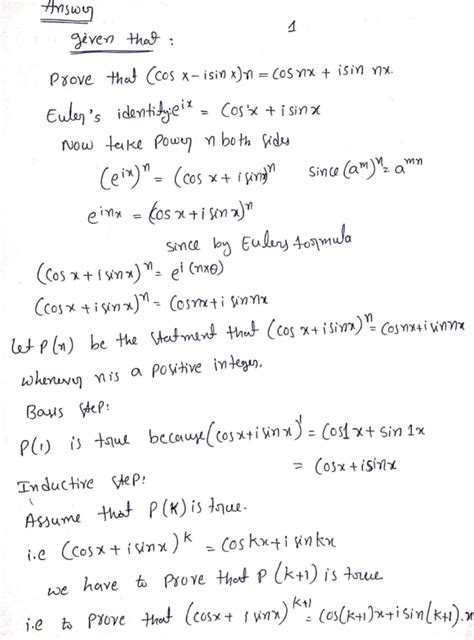 Answer
1
given that :
Prove that (cos x - isin x)n = cos nx + isin nx.
Euler's identity: e^ix = Cos x + i sinx
Now take Power n both sides
(e^ix)^n = (cos x + i sinx)^n since (a^m)^n = a^mn
e^inx = (cos x + i sin x)^n
since by Eulers formula
(cos x + i sinx)^n = e^i(nxθ)
(cosx + i sinx)^n = Cosnx + i sinnx
let P(n) be the statment that (cos x + i sinx)^n = Cosnx + i sinnx
whenever n is a positive integer.
Basis step:
P(1) is true because (cosx + i sinx)^1 = Cos1x + sin 1x
= Cosx + isinx
Inductive step:
Assume that P(K) is true.
i.e (cosx + i sinx)^k = cos kx + i sin kx
we have to prove that P (k+1) is true
i.e to prove that (cosx + i sinx)^k+1 = cos(k+1)x + i sin(k+1).x